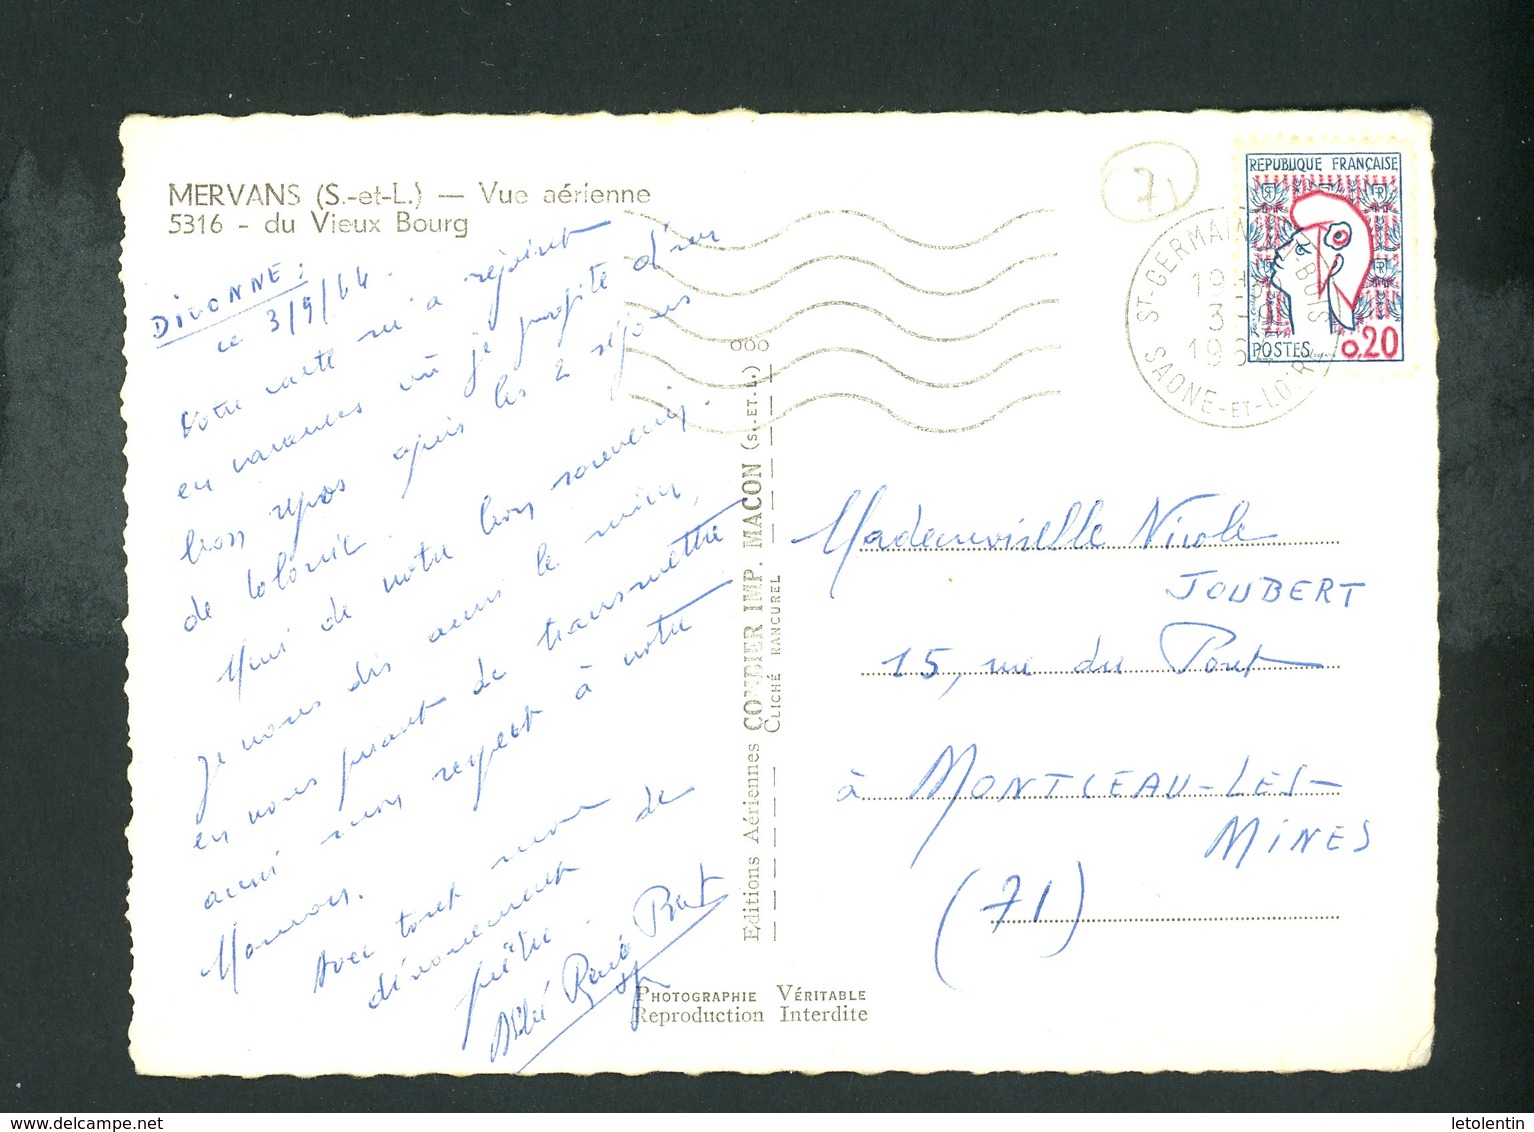 MERVANS (S.-et-L.) — Vue aérienne
5316 - du Vieux Bourg
DIVONNE :
ce 3/9/64.
Votre carte m'a rejoint
en vacances où je profite d'un
bon repos après les 2 séjours
de Colonie.
Merci de votre bon souvenir.
Je vous dis aussi le mien,
en vous priant de transmettre
aussi mon respect à votre
Maman.
Avec tout mon
dévouement de
prêtre.
Abbé René
Editions Aériennes COMBIER IMP. MACON (S.-ET-L.)
CLICHÉ RANCUREL
PHOTOGRAPHIE VÉRITABLE
Reproduction Interdite
71
ST-GERMAIN DU BOIS
19 H
3 - 9
196
SAONE-ET-LOIRE
REPUBLIQUE FRANÇAISE
POSTES 0,20
Mademoiselle Nicole
JOUBERT
15, rue du Pont
à MONTCEAU-LES-
MINES
(71)
letolentin